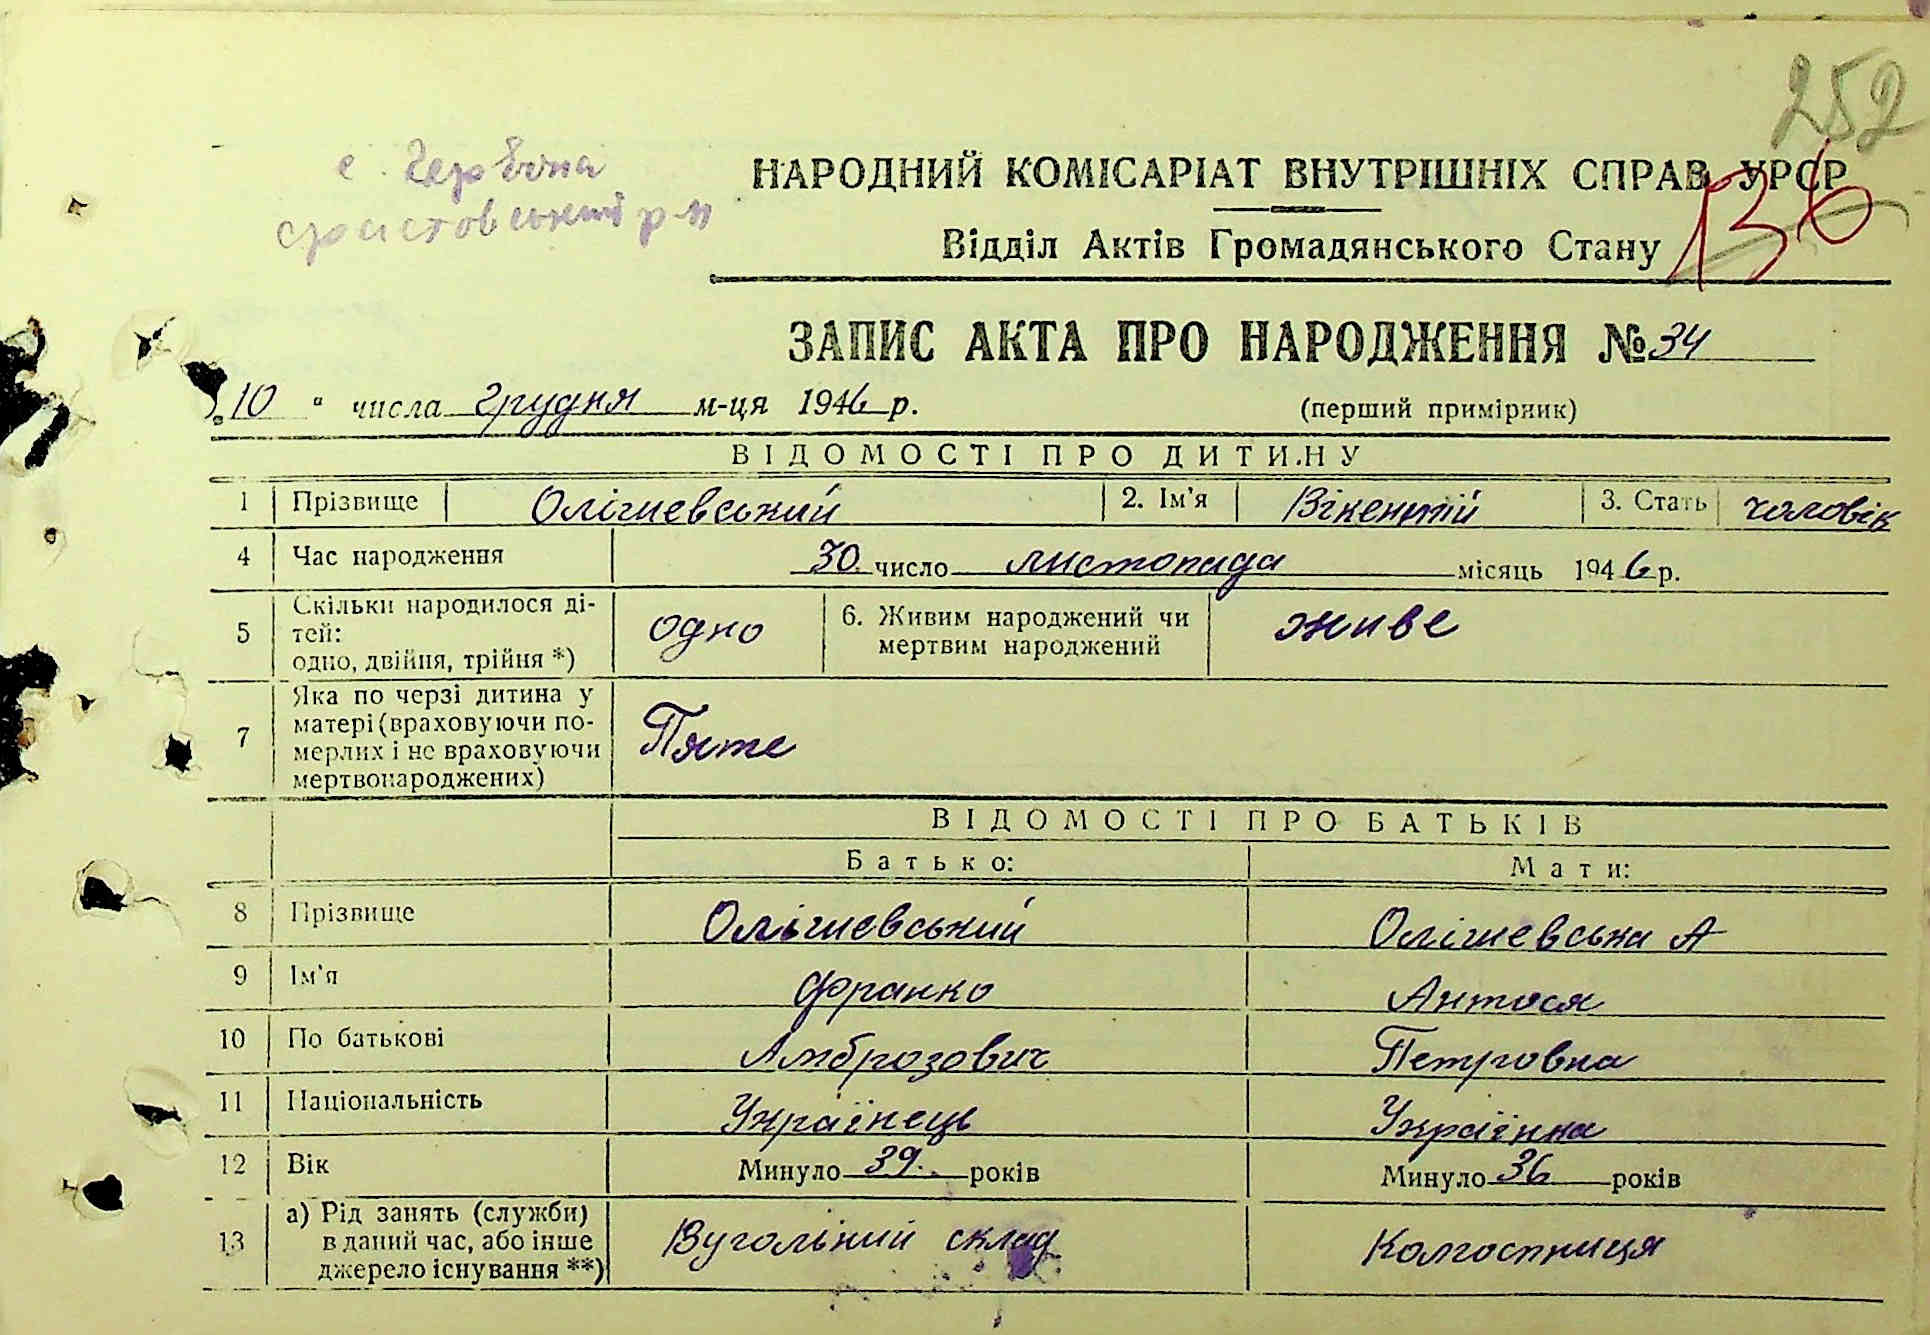 252
с. Червона
фастовський р-н
НАРОДНИЙ КОМІСАРІАТ ВНУТРІШНІХ СПРАВ УРСР
136
Відділ Актів Громадянського Стану
ЗАПИС АКТА ПРО НАРОДЖЕННЯ № 34
„10 " числа грудня м-ця 1946 р.
(перший примірник)
ВІДОМОСТІ ПРО ДИТИНУ
1 Прізвище Олішевський 2. Ім'я Вікентій 3. Стать чоловік
4 Час народження 30 число листопада місяць 1946 р.
5 Скільки народилося ді-
тей:
одно, двійня, трійня *) одно
6. Живим народжений чи
мертвим народжений живе
7 Яка по черзі дитина у
матері (враховуючи по-
мерлих і не враховуючи
мертвонароджених) Пяте
ВІДОМОСТІ ПРО БАТЬКІВ
Батько: Мати:
8 Прізвище Олішевський Олішевська А
9 Ім'я Франко Антося
10 По батькові Амброзович Петровна
11 Національність Українець Українка
12 Вік Минуло 39. років Минуло 36 років
13 а) Рід занять (служби)
в даний час, або інше
джерело існування **) Вугольний склад Колгоспниця